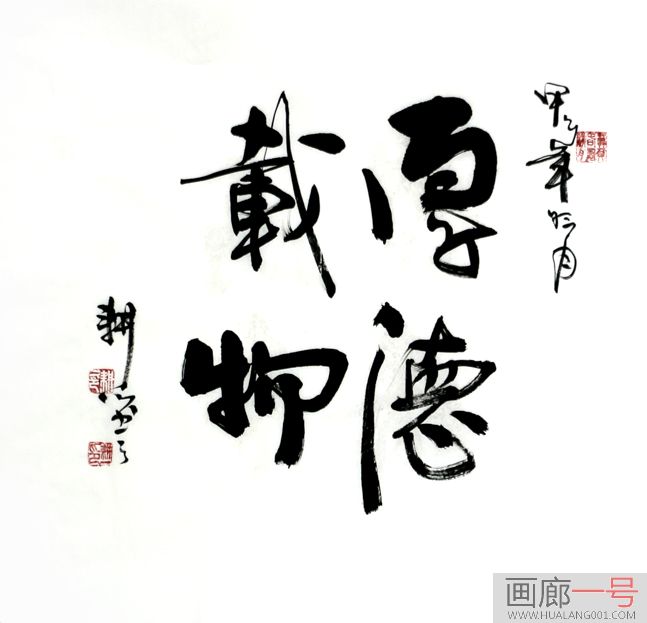 甲午年
厚德
載物
耕
画廊一号
WWW.HUALANG001.COM